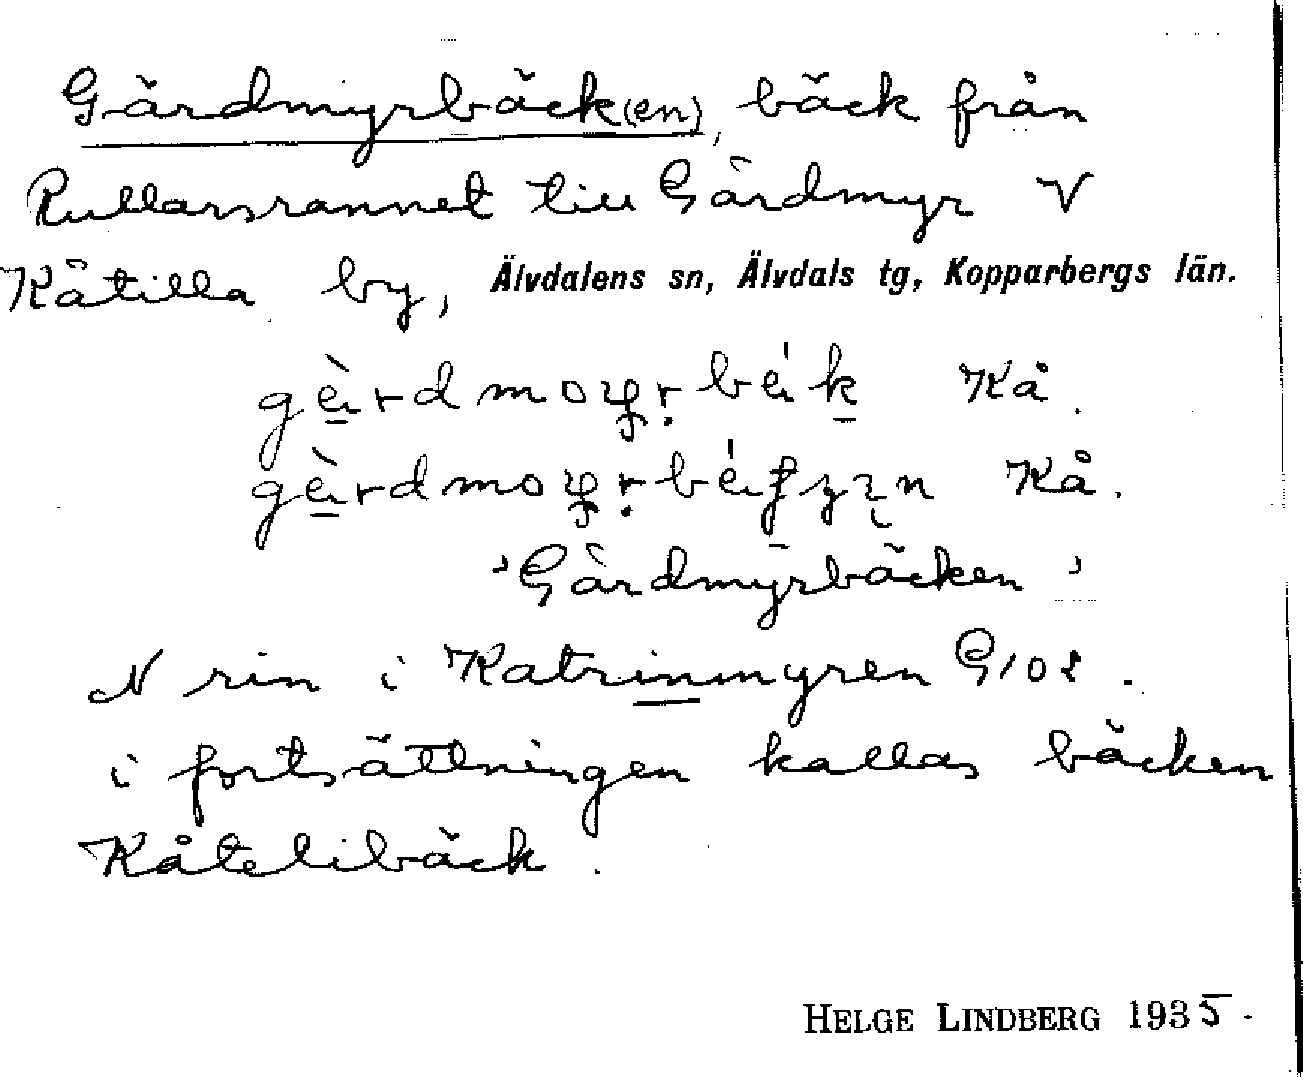 Gärdmyrbäck(en), bäck från
Rullarsrannet till Gärdmyr V
Kåtilla by, Älvdalens sn, Älvdals tg, Kopparbergs län.
Kå.
Kå.
'Gärdmyrbäcken'
N rin i Katrinmyren G108.
i fortsättningen kallas bäcken
Kåtelibäck.
HELGE LINDBERG 1935.